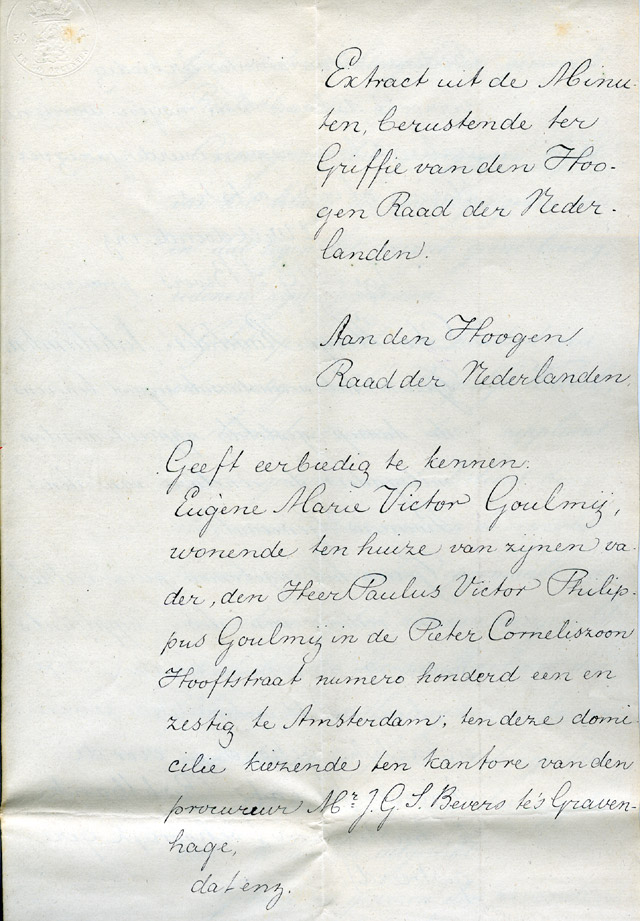 Extract uit de Minu-
ten, berustende ter
Griffie van den Hoo-
gen Raad der Neder-
landen.
Aan den Hoogen
Raad der Nederlanden.
Geeft eerbiedig te kennen:
Eugène Marie Victor Goulmij,
wonende ten huize van zijnen va-
der, den Heer Paulus Victor Philip-
pus Goulmij in de Pieter Corneliszoon
Hooftstraat numero honderd een en
zestig te Amsterdam, ten deze domi-
cilie kiezende ten kantore van den
procureur Mr. J. G. S. Bevers te 's Graven-
hage,
dat enz.